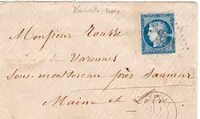 Variété rare
Monsieur Tousse
Varennes
Sous-montsoreau près Saumur
Maine et Loire